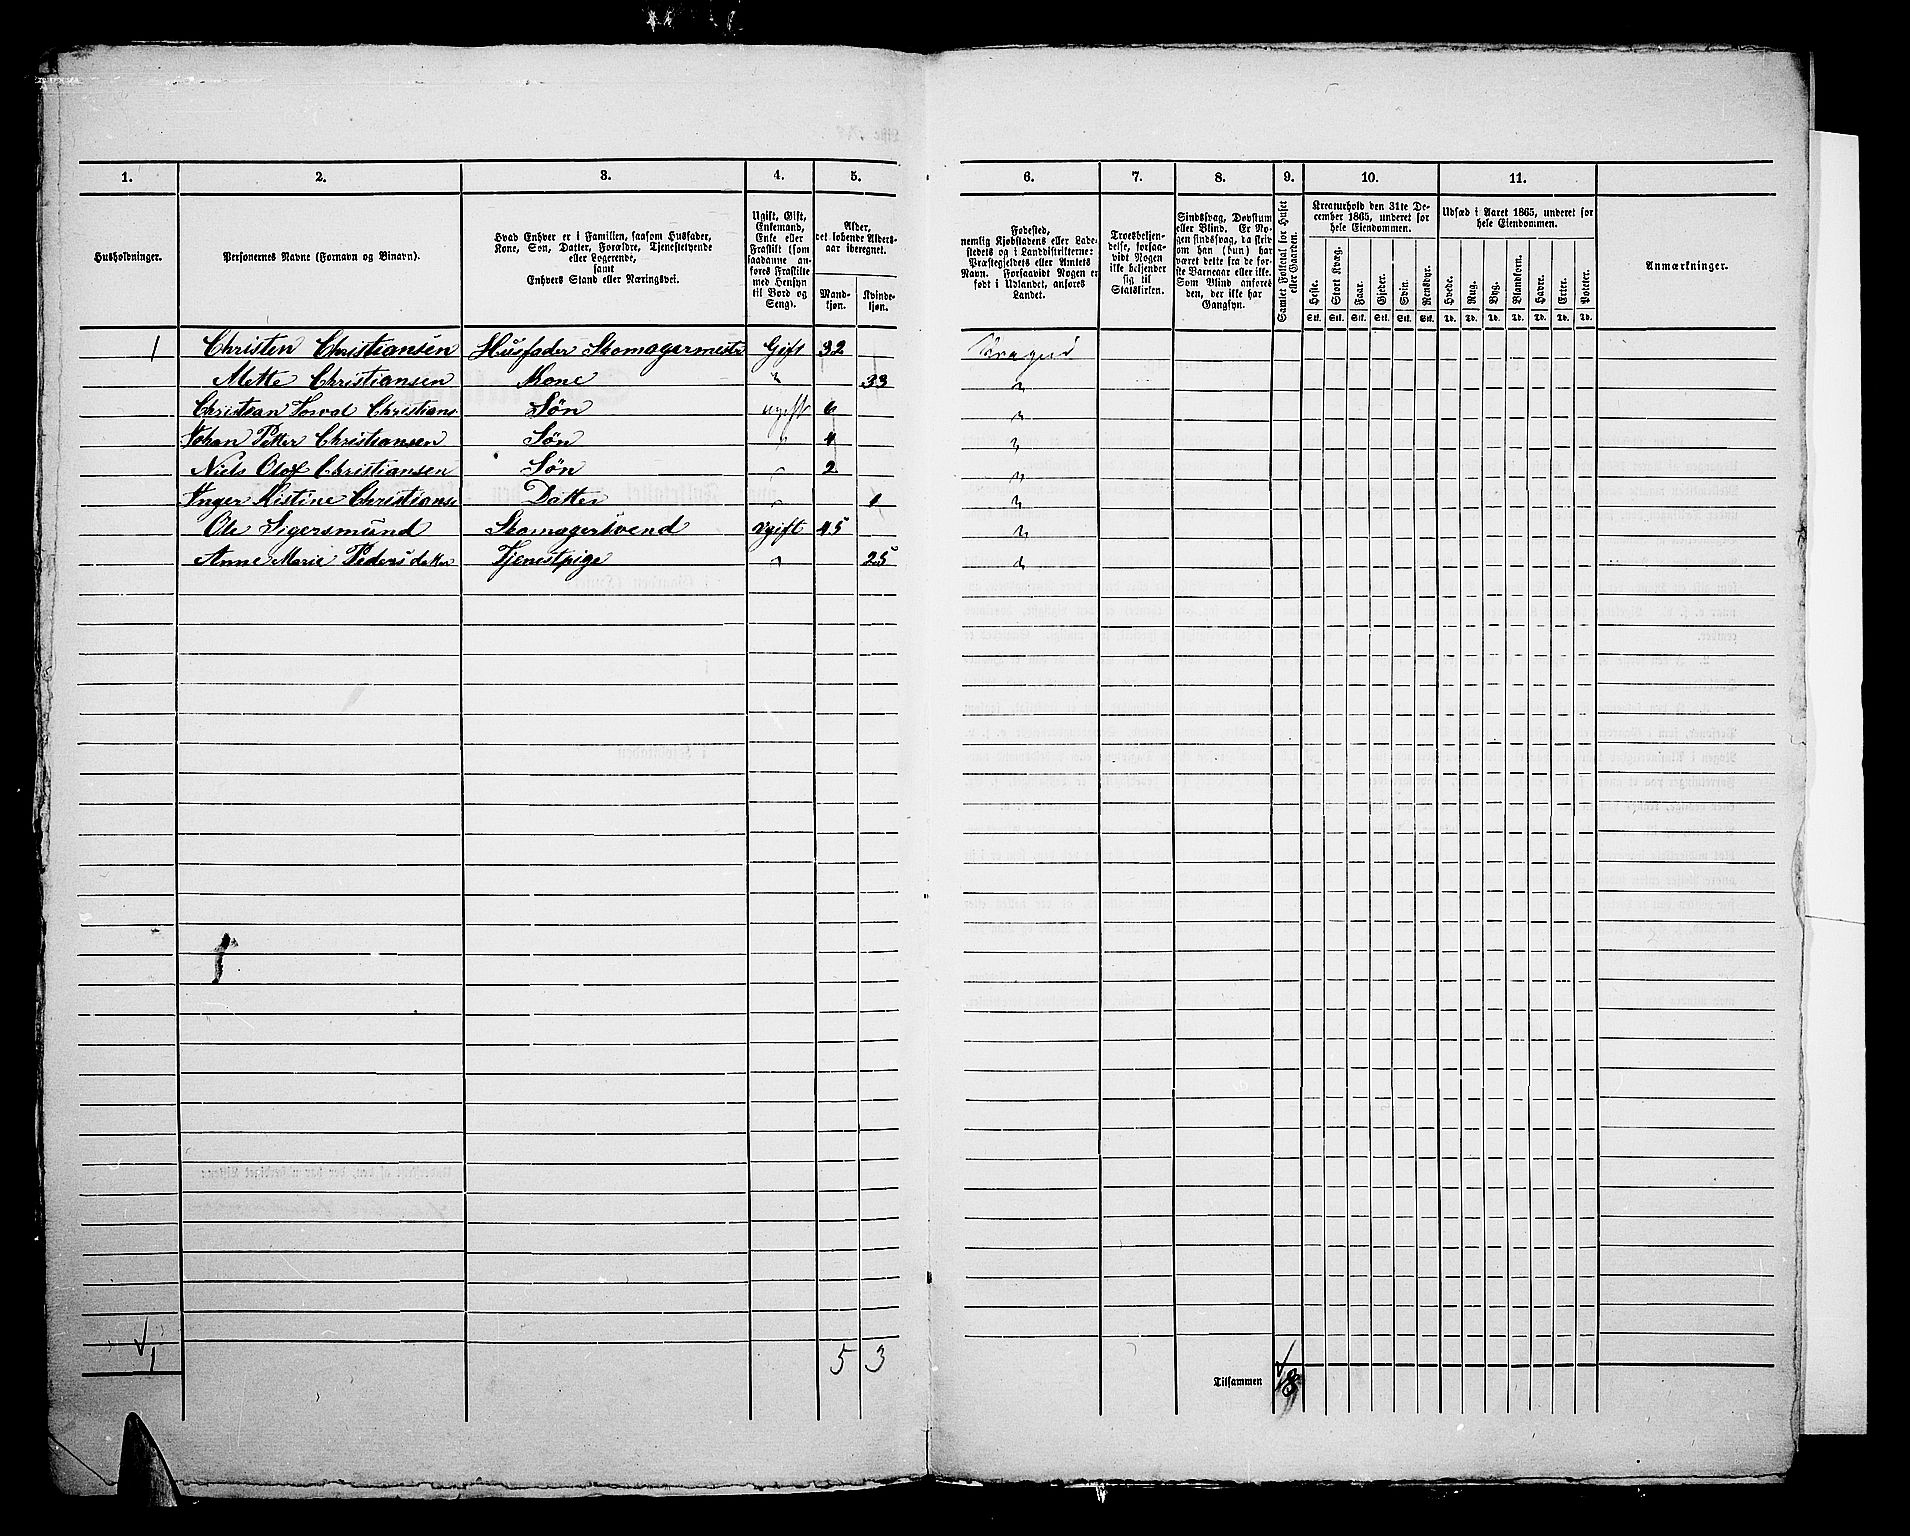 1. 2. 3. 4. 5. 6. 7. 8. 9. 10. 11.
Husholdninger.
Personernes Navne (Fornavn og Binavn).
Hvad Enhver er i Familien, saasom Husfader,
Kone, Søn, Datter, Forældre, Tjenestetyende
eller Logerende,
samt
Enhvers Stand eller Næringsvei.
Ugift, Gift,
Enkemand,
Enke eller
Fraskilt (som
saadanne an-
føres Fraskilte
med Hensyn
til Bord og
Seng).
Alder,
det løbende Alders-
aar iberegnet.
Mand-
kjøn.
Kvinde-
kjøn.
Fødested,
nemlig Kjøbstadens eller Lade-
stedets og i Landdistrikterne:
Præstegjeldets eller Amtets
Navn. Forsaavidt Nogen er
født i Udlandet, anføres
Landet.
Troesbekjen-
delse, forsaa-
vidt Nogen
ikke bekjender
sig til
Statskirken.
Sindssvag, Døvstum
eller Blind. Er No-
gen sindssvag, da skriv
om han (hun) har
været dette fra de før-
ste Barneaar eller ikke.
Som Blind anføres
den, der ikke har
Gangsyn.
Samlet Folketal for Huset
eller Gaarden.
Kreaturhold den 31te De-
cember 1865, underet for
hele Eiendommen.
Heste. Stort Kvæg. Faar. Gjeder. Svin. Rensdyr.
Stk. Stk. Stk. Stk. Stk. Stk.
Udsæd i Aaret 1865, underet for
hele Eiendommen.
Hvede. Rug. Byg. Blandkorn. Havre. Erter. Poteter.
Td. Td. Td. Td. Td. Td. Td.
Anmærkninger.
1 Christen Christiansen Husfader Skomagermester Gift 32 Kragerø
Mette Christiansen Kone " 33 "
Christian Christians Søn ugift 6 "
Johan Petter Christiansen Søn " 4 "
Niels Olaf Christiansen Søn " 2 "
Inger Kistine Christianse Datter " 1 "
Ole Sigersmund Skomagersvend Ugift 45 "
Anne Marie Pedersdatter Tjenestpige " 25 "
1 5 3 Tilsammen 8